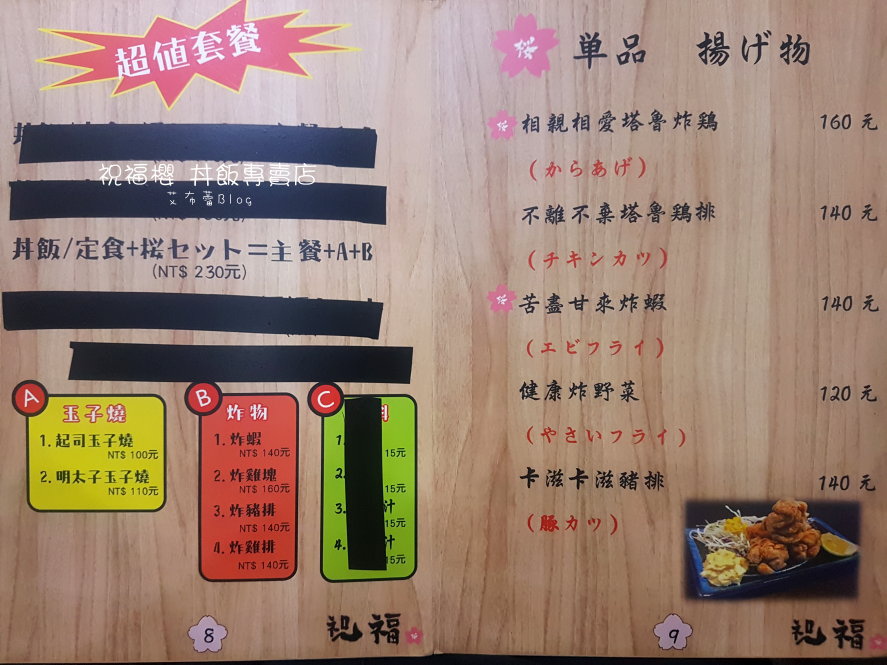 超値套餐
祝福櫻 丼飯專賣店
艾布蕾Blog
丼飯/定食+桜セット=主餐+A+B
(NT$ 230元)
A
玉子燒
1. 起司玉子燒
NT$ 100元
2. 明太子玉子燒
NT$ 110元
B
炸物
1. 炸蝦
NT$ 140元
2. 炸雞塊
NT$ 160元
3. 炸豬排
NT$ 140元
4. 炸雞排
NT$ 140元
C
1.
15元
2.
15元
3. 汁
15元
4. 汁
15元
8
祝福
桜 単品 揚げ物
桜 相親相愛塔魯炸鶏 160 元
(からあげ)
不離不棄塔魯鶏排 140 元
(チキンカツ)
桜 苦盡甘來炸蝦 140 元
(エビフライ)
健康炸野菜 120 元
(やさいフライ)
卡滋卡滋豬排 140 元
(豚カツ)
9
祝福